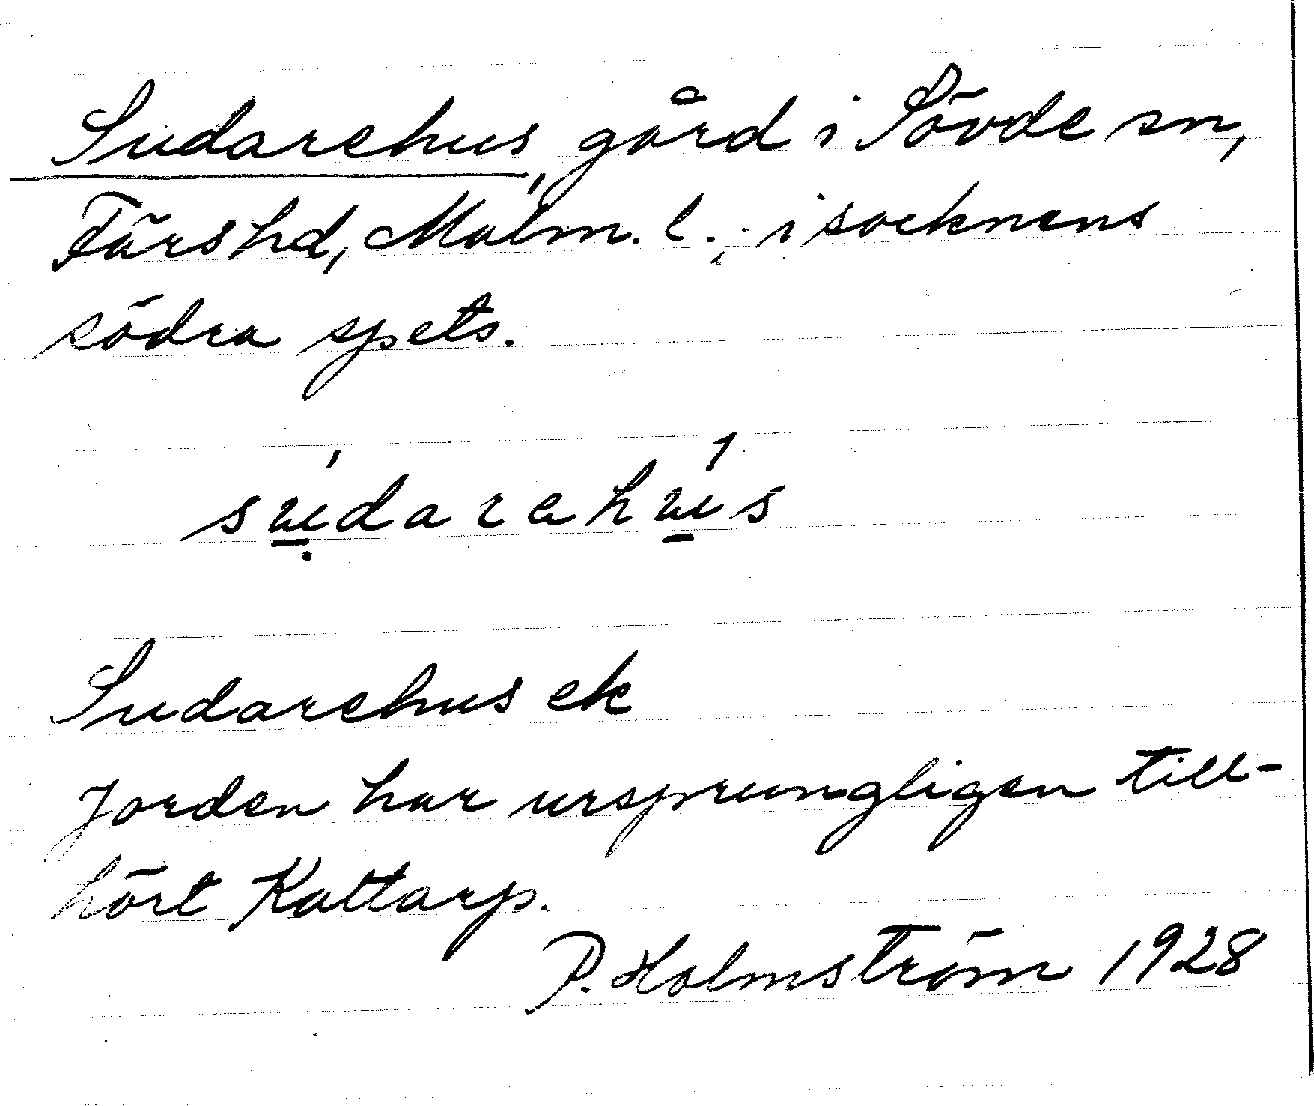 Sudarehus, gård i Sövde sn,
Färs hd, Malm. l., i socknens
södra spets.
su̱̣darahu̱s
Sudarehus ek
Jorden har ursprungligen till-
hört Kattarp.
P. Holmström 1928